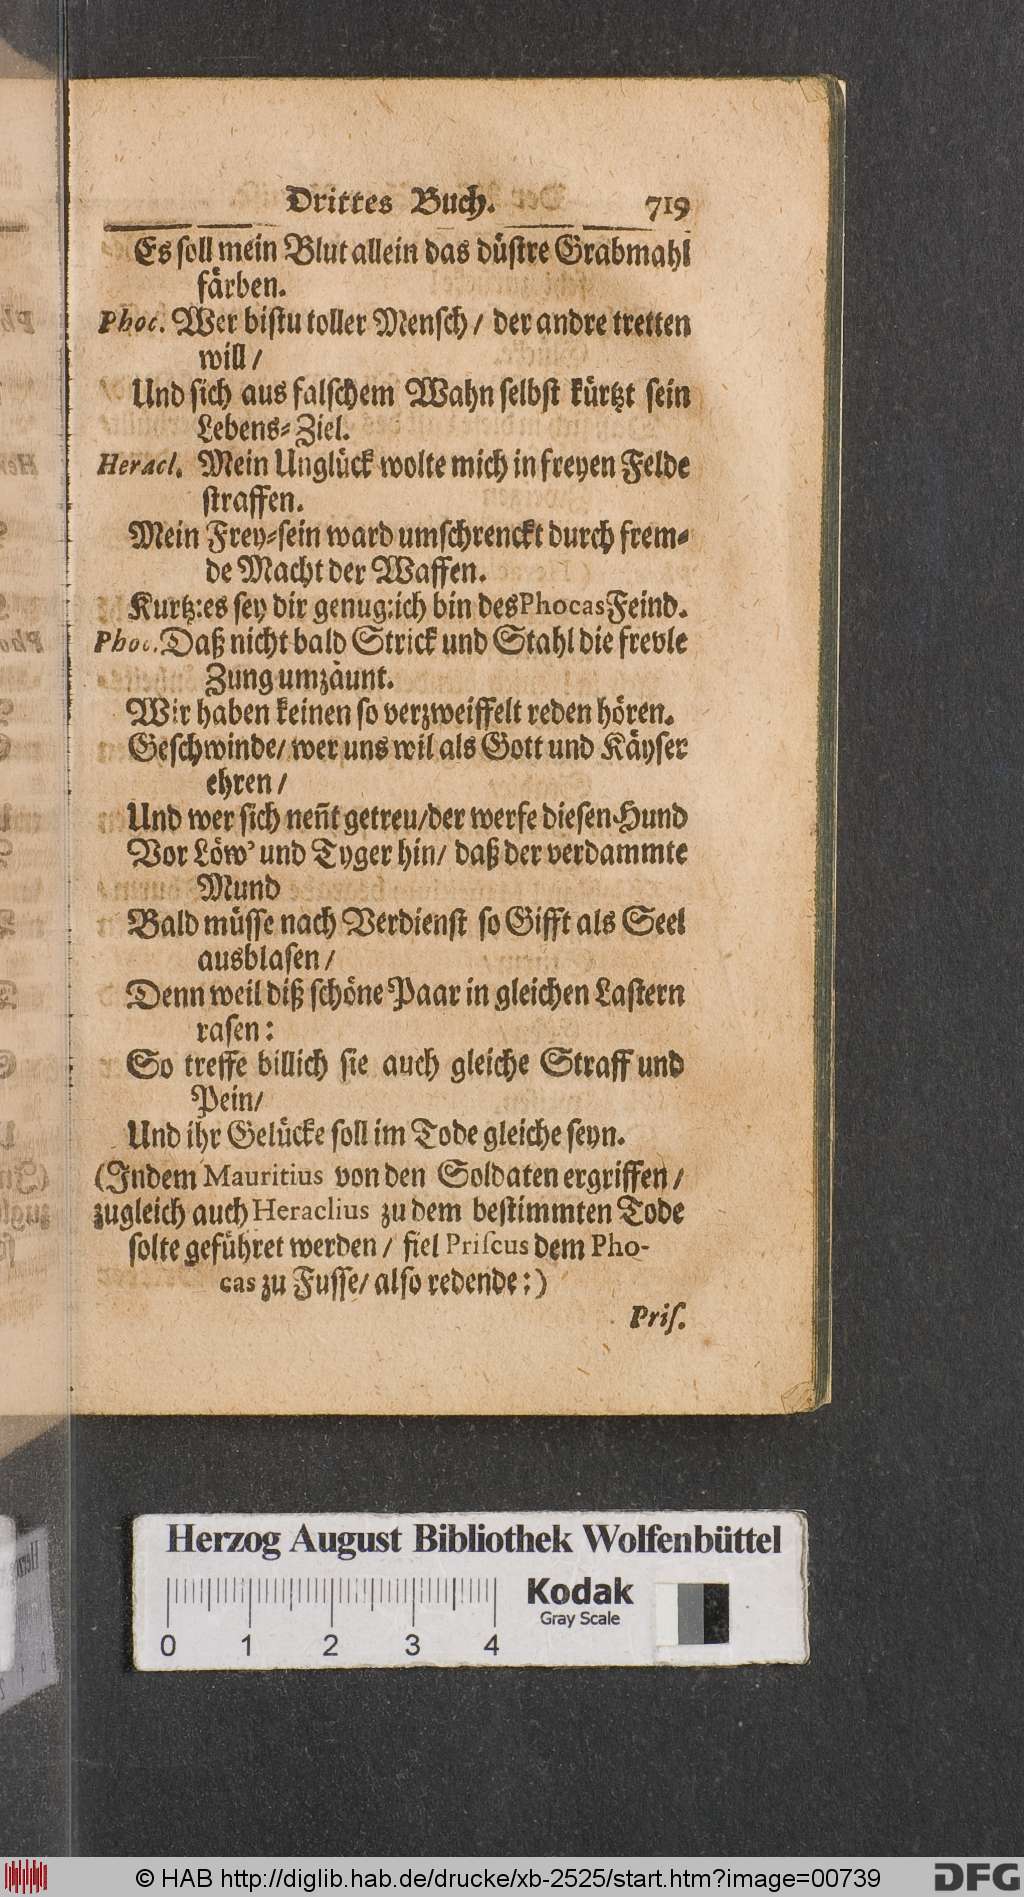 Drittes Buch. 719
Es soll mein Blut allein das düstre Grabmahl
färben.
Phoc. Wer bistu toller Mensch / der andre tretten
will /
Und sich aus falschem Wahn selbst kürtzt sein
Lebens-Ziel.
Heracl. Mein Unglück wolte mich in freyen Felde
straffen.
Mein Frey-sein ward umschrenckt durch frem-
de Macht der Waffen.
Kurtz: es sey dir genug: ich bin des Phocas Feind.
Phoc. Daß nicht bald Strick und Stahl die frevle
Zung umzäunt.
Wir haben keinen so verzweiffelt reden hören.
Geschwinde / wer uns wil als Gott und Käyser
ehren /
Und wer sich neñt getreu / der werfe diesen Hund
Vor Löw' und Tyger hin / daß der verdammte
Mund
Bald müsse nach Verdienst so Gifft als Seel
ausblasen /
Denn weil diß schöne Paar in gleichen Lastern
rasen:
So treffe billich sie auch gleiche Straff und
Pein /
Und ihr Gelücke soll im Tode gleiche seyn.
(Indem Mauritius von den Soldaten ergriffen /
zugleich auch Heraclius zu dem bestimmten Tode
solte geführet werden / fiel Priſcus dem Pho-
cas zu Fusse / also redende:)
Priſ.
Herzog August Bibliothek Wolfenbüttel
Kodak
Gray Scale
0 1 2 3 4
© HAB http://diglib.hab.de/drucke/xb-2525/start.htm?image=00739
DFG